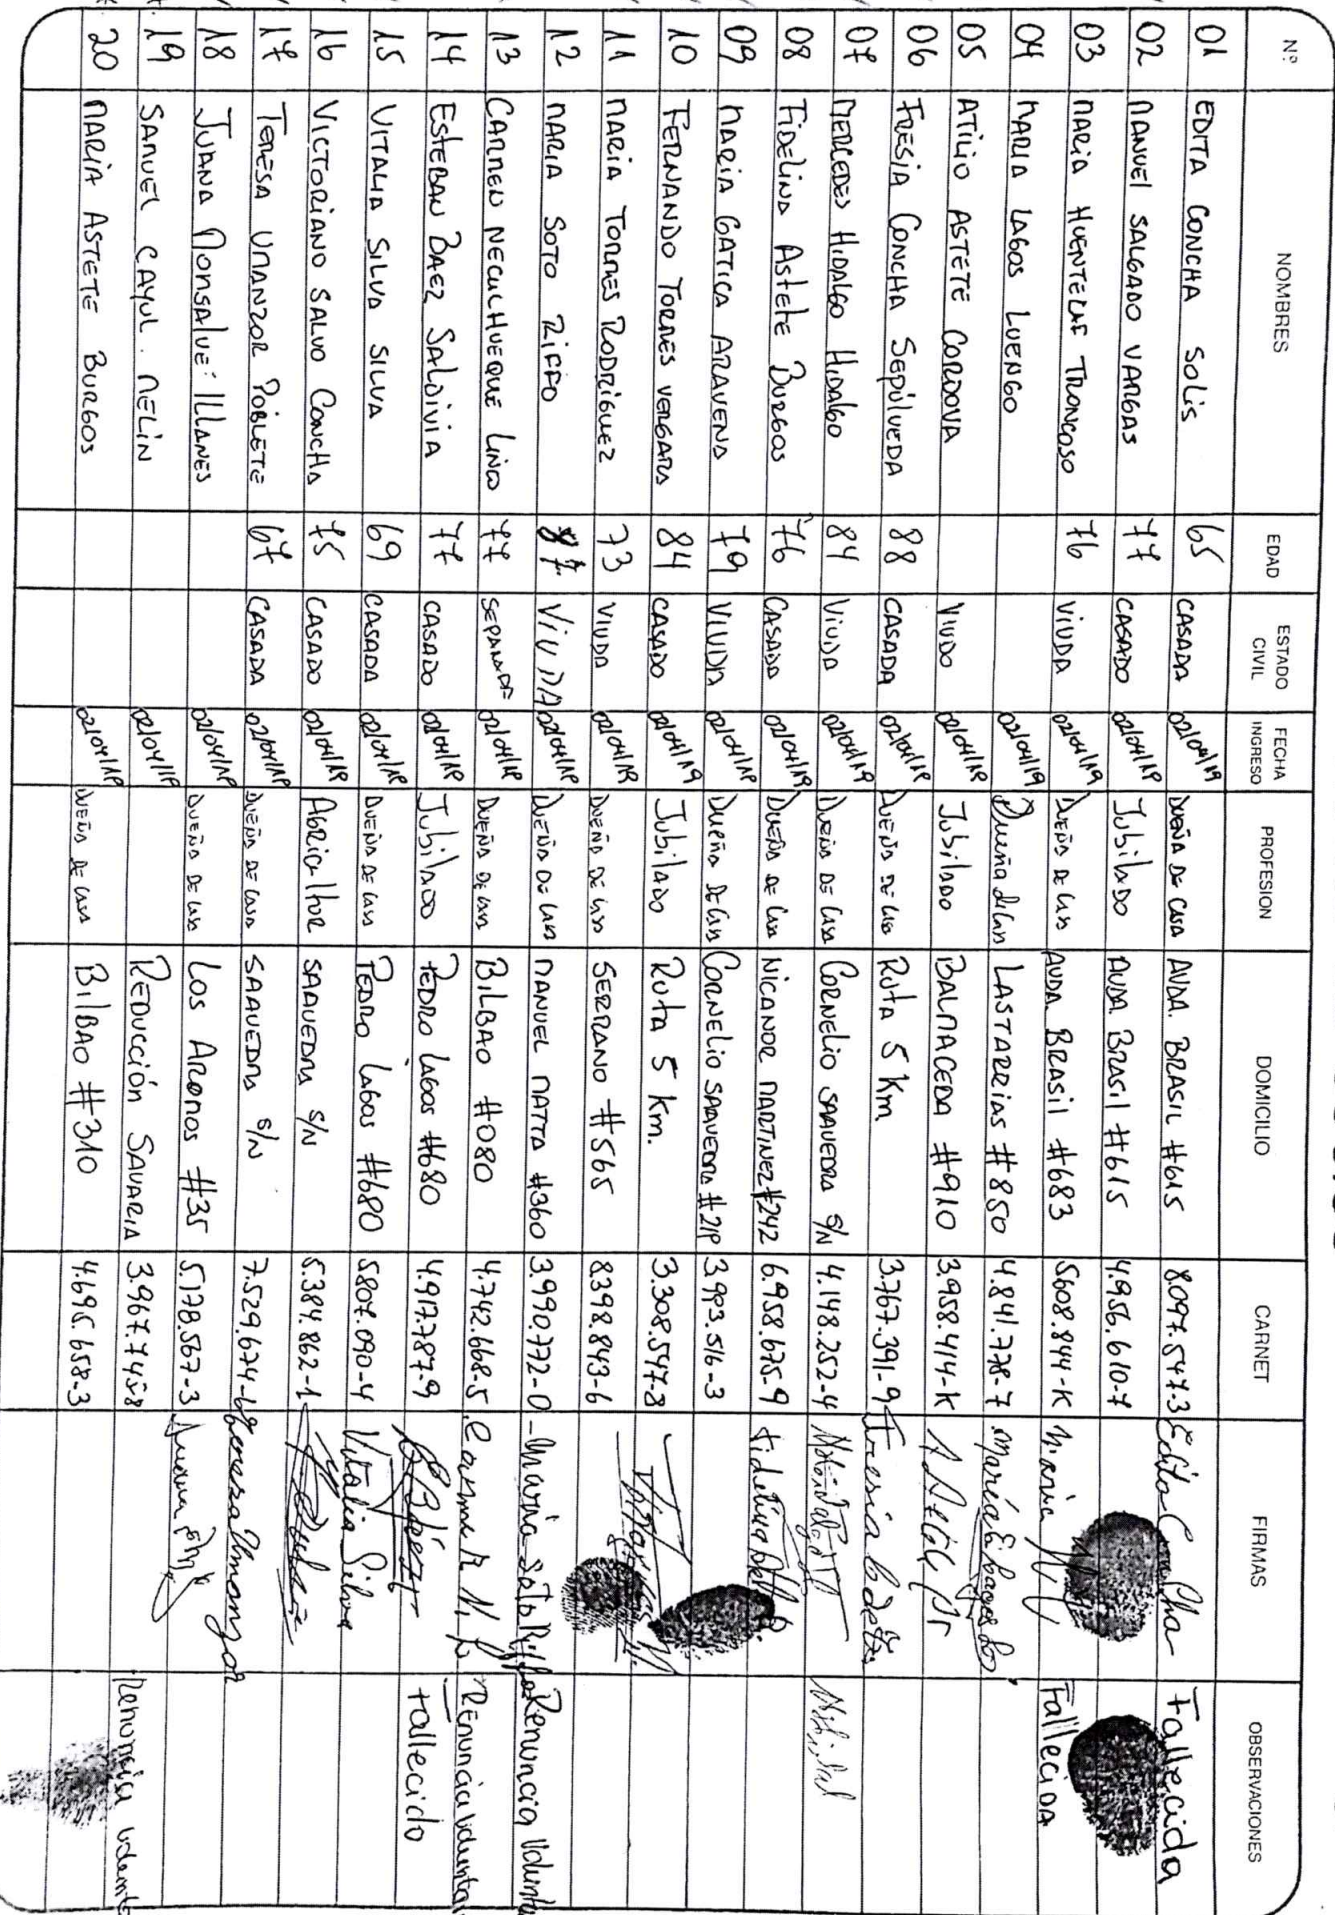 Nº NOMBRES EDAD ESTADO CIVIL FECHA INGRESO PROFESION DOMICILIO CARNET FIRMAS OBSERVACIONES
01 EDITA CONCHA SOLIS 65 CASADA 02/04/19 DUEÑA DE CASA AVDA. BRASIL #615 8.097.547-3 Edita Concha Fallecida
02 MANUEL SALGADO VARGAS 77 CASADO 02/04/19 Jubilado AVDA BRASIL #615 4.956.610-7
03 MARIA HUENTELAF TRONCOSO 76 VIUDA 02/04/19 DUEÑA DE CASA AVDA BRASIL #683 5608.844-K Maria Fallecida
04 MARIA LAGOS LUENGO 02/04/19 Dueña de Casa LASTARRIAS #850 4.841.778-7
05 ATILIO ASTETE CORDOVA VIUDO 02/04/19 Jubilado BALMACEDA #910 3.958.414-K
06 FRESIA CONCHA SEPÚLVEDA 88 CASADA 02/04/19 DUEÑA DE CASA RUTA 5 Km 3.767.391-9 Fresia
07 MERCEDES HIDALGO HIDALGO 84 VIUDA 02/04/19 DUEÑA DE CASA CORNELIO SAAVEDRA S/N 4.148.252-4
08 FIDELINA Astete BURGOS 76 CASADA 02/04/19 DUEÑA DE CASA NICANOR MARTINEZ #242 6.958.675-9 Fidelina
09 MARIA GATICA ARAVENA 79 VIUDA 02/04/19 DUEÑA DE CASA CORNELIO SAAVEDRA #219 3.993.516-3
10 FERNANDO TORRES VERGARA 84 CASADO 02/04/19 Jubilado RUTA 5 Km. 3.308.547-8
11 MARIA TORRES RODRIGUEZ 73 VIUDA 02/04/19 DUEÑA DE CASA SERRANO #565 8398.843-6
12 MARIA SOTO RIFFO 87 VIUDA 02/04/19 DUEÑA DE CASA MANUEL MATTA #360 3.990.772-0 Maria Soto Riffo Renuncia Volunta
13 CARMEN NECULHUEQUE LINCO 77 SEPARADA 02/04/19 DUEÑA DE CASA BILBAO #080 4.742.668-5 Carmen N. L. Renuncia Voluntar
14 ESTEBAN BAEZ SALDIVIA 77 CASADO 02/04/19 Jubilado PEDRO LAGOS #680 4.917.787-9 Fallecido
15 VITALIA SILVA SILVA 69 CASADA 02/04/19 DUEÑA DE CASA PEDRO LAGOS #680 5807.090-4 Vitalia Silva
16 VICTORIANO SALVO CONCHA 75 CASADO 02/04/19 Agricultor SAAVEDRA S/N 5.384.862-1
17 TERESA UMANZOR POBLETE 67 CASADA 02/04/19 DUEÑA DE CASA SAAVEDRA S/N 7.529.674-6 Teresa Umanzor
18 JUANA MONSALVE ILLANES 02/04/19 DUEÑA DE CASA LOS AROMOS #35 5.178.567-3 Juana
19 SAMUEL CAYUL MELIN 02/04/19 REDUCCIÓN SAVARIA 3.967.745-8 Renuncia Volunta
20 MARIA ASTETE BURGOS 02/04/19 DUEÑA DE CASA BILBAO #310 4.695.658-3